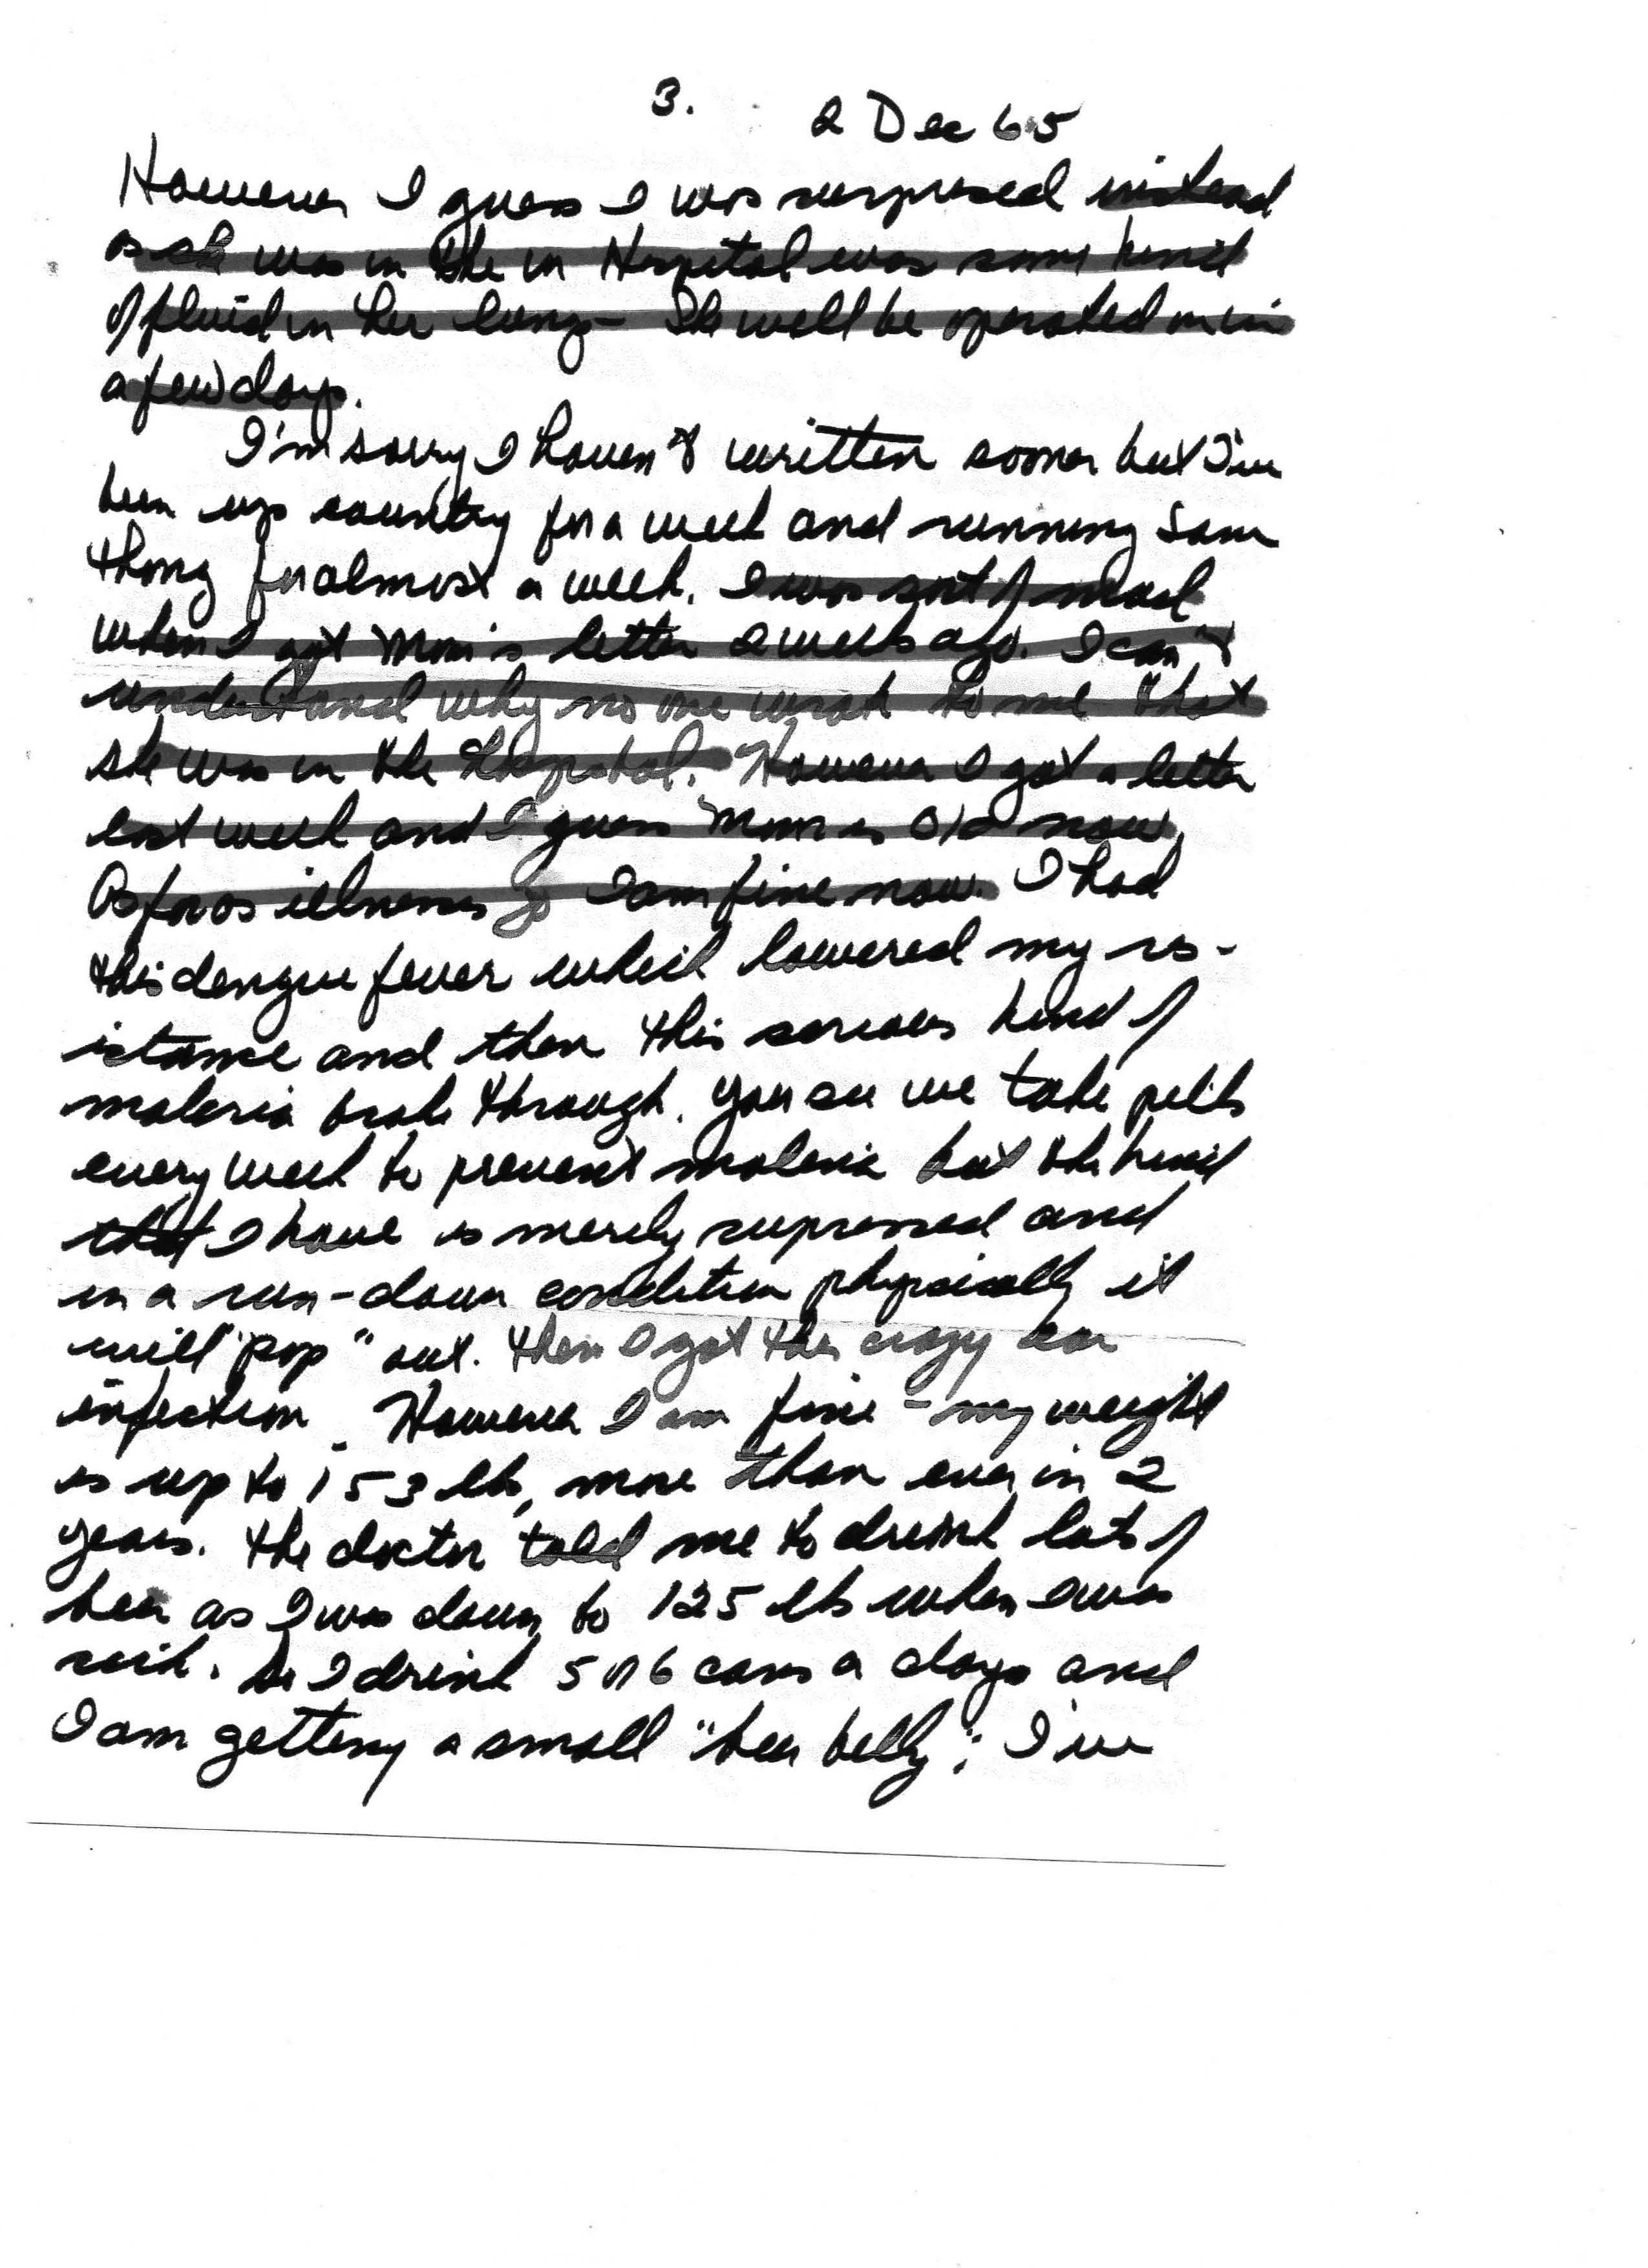 3. 2 Dec 65
However I guess I was surprised instead
as she was in the in Hospital was some kind
of fluid in her lungs - She will be operated on in
a few days.
I'm sorry I haven't written sooner but I've
been up country for a week and running some
thing for almost a week. I was sort of mad
when I got Mom's letter 2 weeks ago. I can't
understand why no one wrote to me that
she was in the Hospital. However I got a letter
last week and I guess Mom is O.K. now.
As far as illnesses go I am fine now. I had
this dengue fever which lowered my res-
istance and then this serious kind of
malaria broke through. You see we take pills
every week to prevent malaria but the kind
that I have is merely supressed and
in a run-down condition physically it
will "pop" out. Then I got this crazy ear
infection. However I am fine - my weight
is up to 153 lbs, more than ever in 2
years. The doctor told me to drink lots of
beer as I was down to 125 lbs when I was
sick. So I drink 5 or 6 cans a days and
I am getting a small "beer belly"; I've